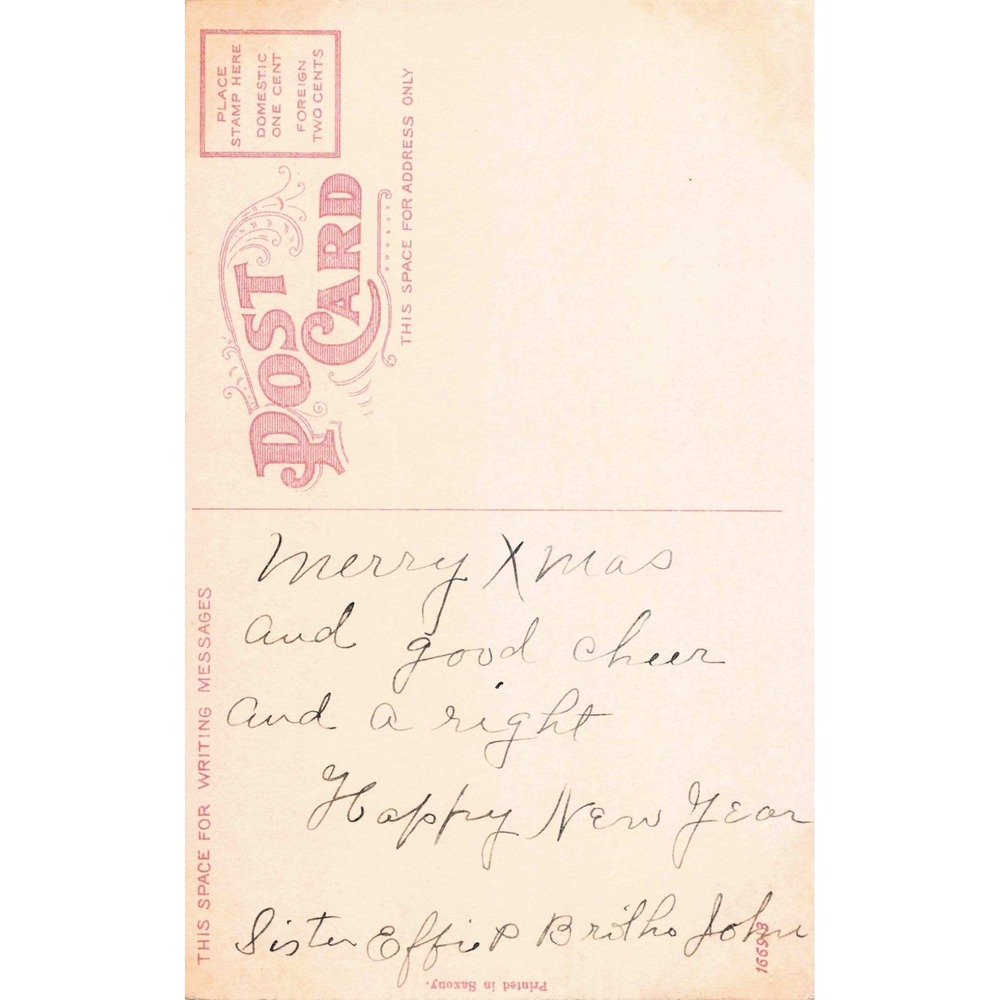 PLACE
STAMP HERE
DOMESTIC
ONE CENT
FOREIGN
TWO CENTS
POST
CARD
THIS SPACE FOR ADDRESS ONLY
THIS SPACE FOR WRITING MESSAGES
Merry Xmas
and good cheer
and a right
Happy New Year
Sister Effie John
Printed in Saxony.